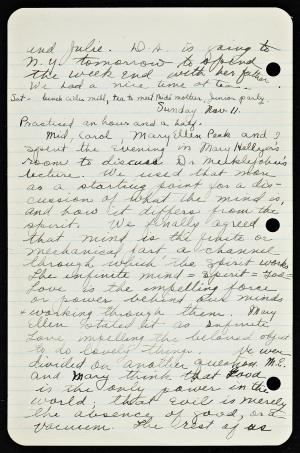 and Julie. D.A. is going to
N.Y. tomorrow to spend
the week end with her father.
We had a nice time at tea.
Sat - lunch with Mid, tea to meet Mid's mother, Junior party
Sunday Nov. 11.
Practiced an hour and a half.
Mid, Carol, Mary Ellen Peak and I
spent the evening in Mary Hellyn's
room to discuss Dr Meiklejohn's
lecture. We used that more
as a starting point for a dis-
cussion of what the mind is,
and how it differs from the
spirit. We finally agreed
that mind is the finite or
mechanical plane - channel
through which the spirit works
The infinite mind = spirit = God =
Love is the impelling force
or power behind our minds
+ working through them. Mary
Ellen stated it as infinite
Love, impelling the beloved object
to do lovely things. We were
divided on another question. M.E.
and Mary think that Good
is the only power in the
world; that evil is merely
the absence of good, or a
vacuum. The rest of us